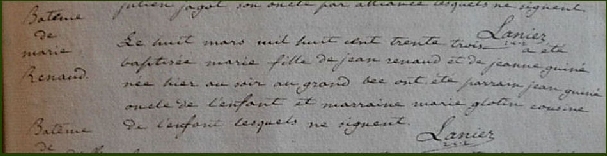 julien jagot son oncle par alliance lesquels ne signent
Batême
de
marie
Renaud.
Lanier
Le huit mars mil huit cent trente trois a été
baptisée marie fille de jean renaud et de jeanne guiné
née hier au soir au grand bee ont été parrain jean guiné
oncle de l'enfant et marraine marie glotin cousine
de l'enfant lesquels ne signent.
Lanier
Batême
de